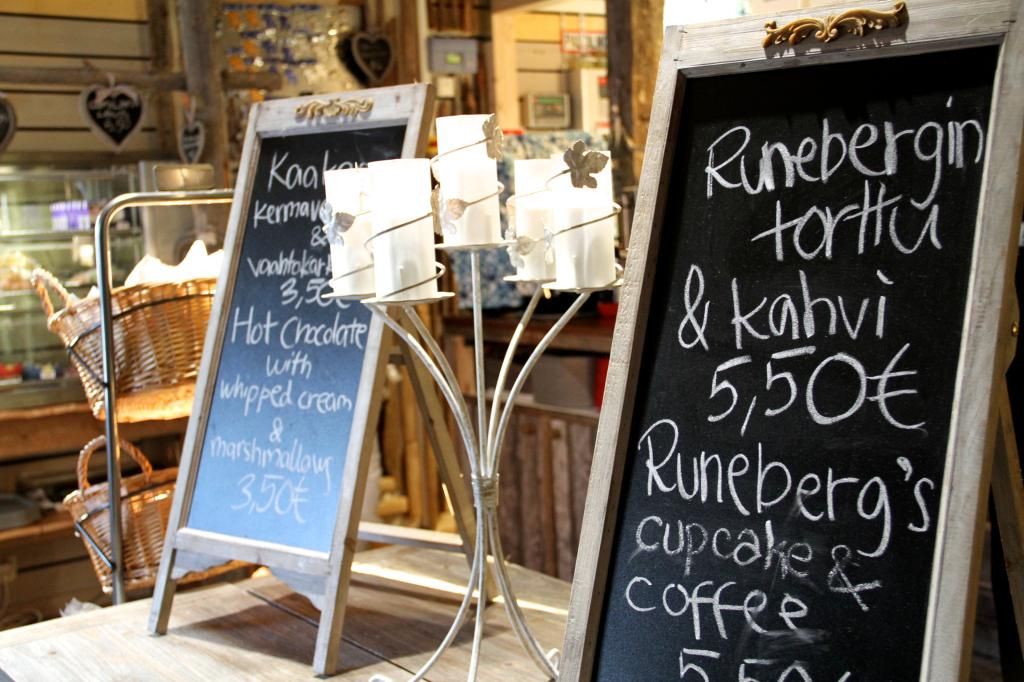 kermav
&
3,50
Hot Chocolate
with
whipped cream
&
marshmallows
3,50€
Runebergin
torttu
& kahvi
5,50€
Runeberg's
cupcake &
coffee
5,50€